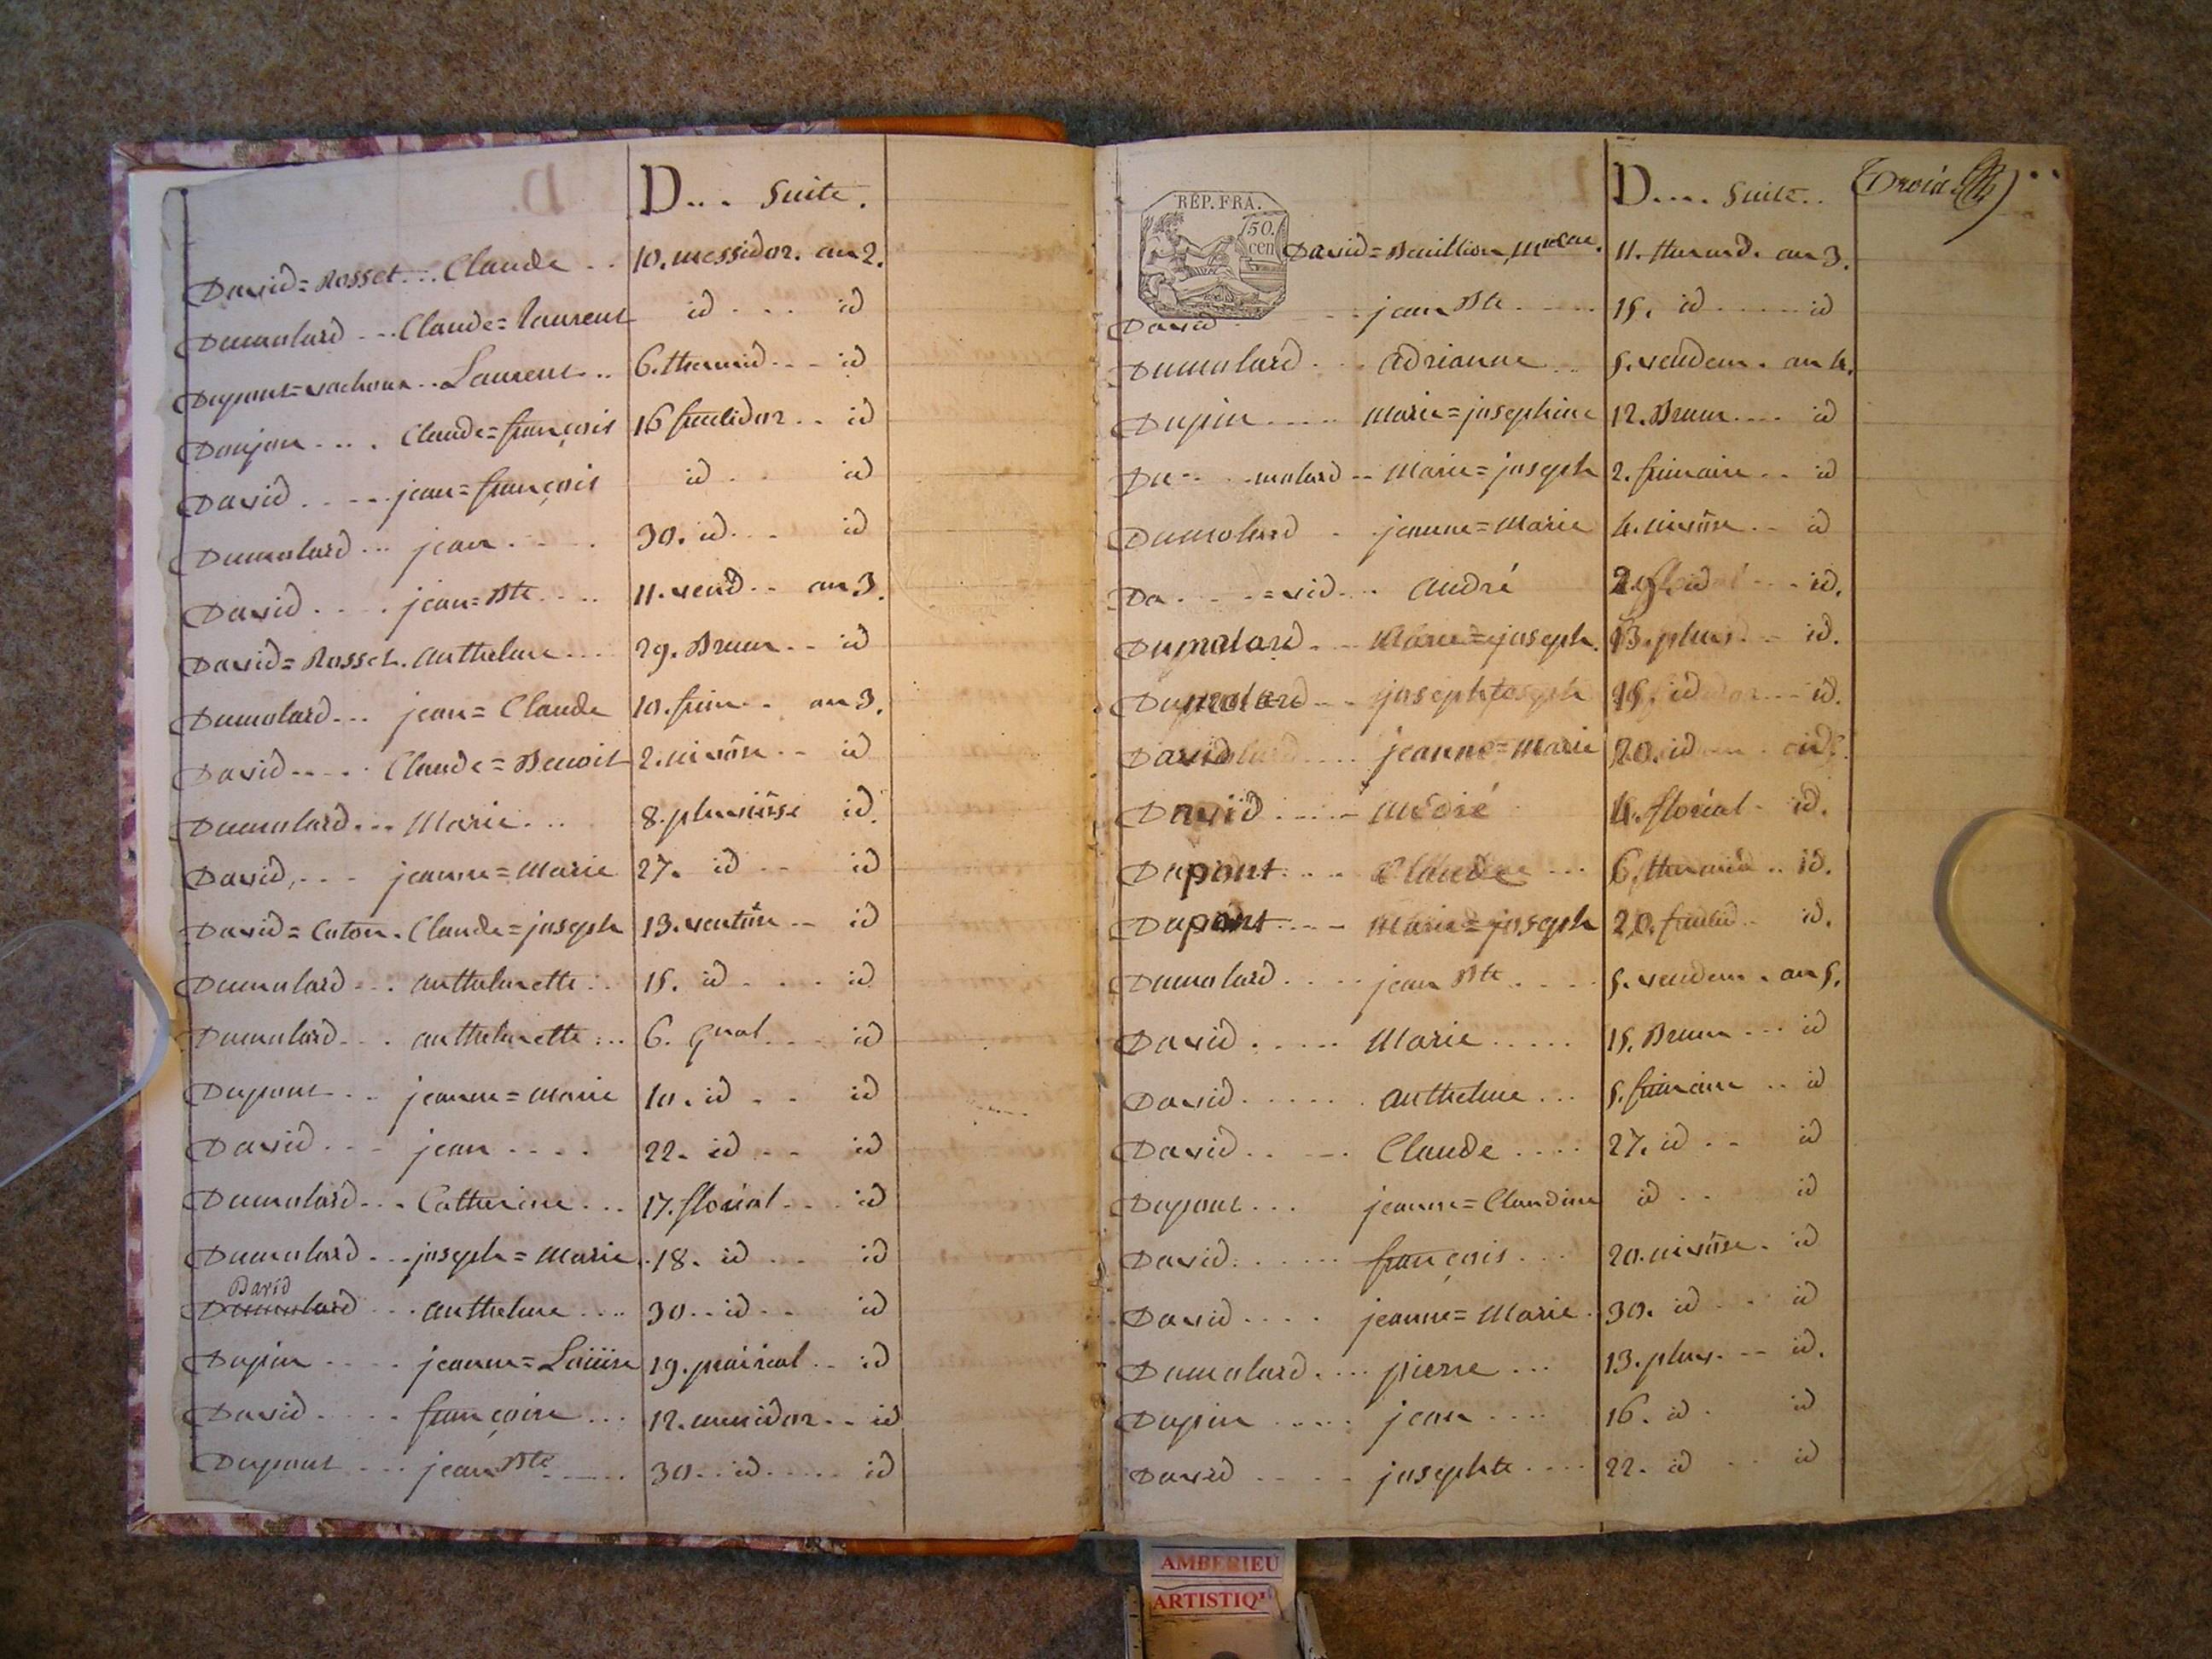 D... Suite.
David=Rosset... Claude.. 10. messidor. an 2.
Dumolard... Claude=laurent id... id
Dupont=vachoux.. Laurent.. 6. thermid.. id
Donjon.... Claude=françois 16 fructidor.. id
David..... jean=françois id.. id
Dumolard... jean.... 30. id... id
David.... jean=Bte.... 11. vend.. an 3.
David=Rosset. anthelme... 29. Brum.. id
Dumolard... jean=Claude 10. frim.. an 3.
David..... Claude=Benoit 2. nivôse.. id
Dumolard... Marie... 8. pluviôse id.
David,... jeanne=Marie 27. id.. id
David=Caton. Claude=joseph 13. ventôse.. id
Dumolard... anthelmette.. 15. id.... id
Dumolard... anthelmette... 6. gnal... id
Dupont.. jeanne=Marie 10. id.. id
David... jean.... 22. id... id
Dumolard... Catherine... 17. floréal... id
Dumolard... joseph=Marie. 18. id... id
David
Dumolard... anthelme.... 30.. id.. id
Dupin.... jeanne=Loüise 19. prairial.. id
David..... françoise... 12. messidor.. id
Dupont... jean Bte..... 30.. id..... id
D.... Suite..
Trois
REP. FRA.
50.
cen
David=Bouillon, 11. thermid. an 3.
David ... jean Bte..... 15. id..... id
Dumolard... adrianne.. 5. vendem. an 4.
Dupin..... Marie=josephine 12. Brum.... id
Du... molard.. Marie=joseph 2. frimaire.. id
Dumolard.. jeanne=Marie 4. nivôse.. id
Da....=vid... André id.
Dumolard... Marie=joseph. 13. pluv.. id.
Dumolard... joseph 15. id... id.
David.... jeanne=Marie 20. id. id
David..... André 4. floréal. id.
Dupont.... Claude... 6. thermid.. id.
Dupont.... Marie=joseph 20. fructid.. id.
Dumolard.... jean Bte.... 5. vendem. an 5.
David..... Marie..... 15. Brum... id
David..... anthelme... 5. frimaire.. id
David..... Claude.... 27. id.. id
Dupont... jeanne=Claudine id.. id
David...... françois... 20. nivôse. id
David.... jeanne=Marie. 30. id... id
Dumolard.... pierre... 13. pluv.... id.
Dupin..... jean.... 16. id. id
David..... josephte.... 22. id.. id
AMBERIEU
ARTISTIQ